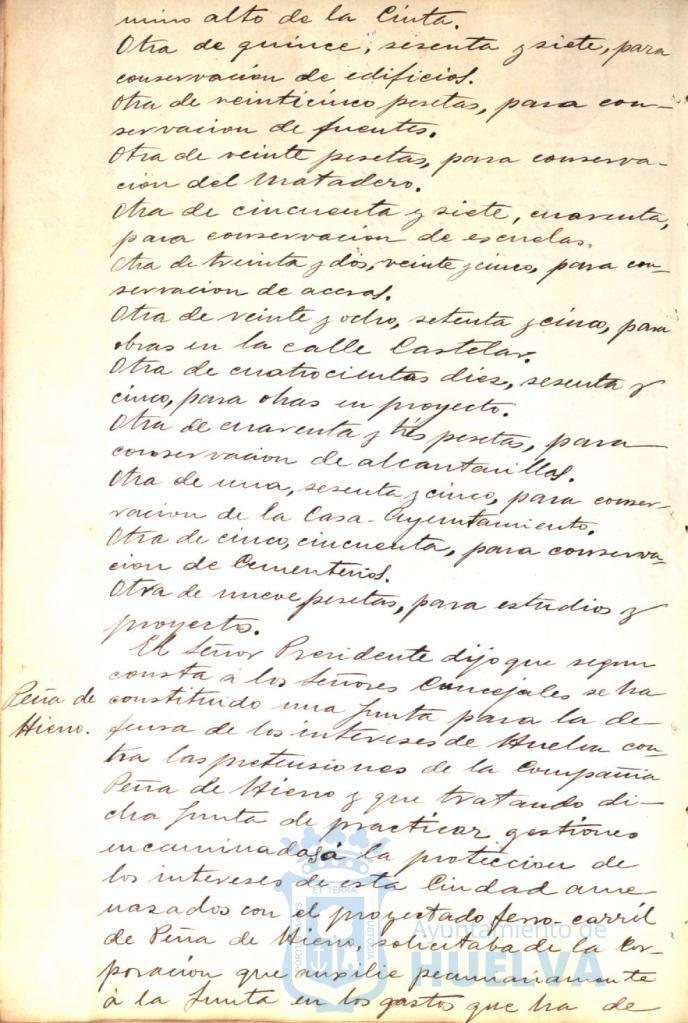 mino alto de la Cinta.
Otra de quince, sesenta y siete, para
conservación de edificios.
Otra de veinticinco pesetas, para con-
servacion de fuentes.
Otra de veinte pesetas, para conserva-
cion del Matadero.
Otra de cincuenta y siete, cuarenta,
para conservación de escuelas.
Otra de treinta y dos, veinte y cinco, para con-
servacion de aceras.
Otra de veinte y ocho, setenta y cinco, para
obras en la calle Castelar.
Otra de cuatrocientas diez, sesenta y
cinco, para obras en proyecto.
Otra de cuarenta y tres pesetas, para
conservacion de alcantarillas.
Otra de una, sesenta y cinco, para conser-
vacion de la Casa-Ayuntamiento.
Otra de cinco, cincuenta, para conserva-
cion de Cementerios.
Otra de nueve pesetas, para estudios y
proyectos.
El Señor Presidente dijo que segun
consta á los Señores Concejales se ha
Peña de
Hierro.
constituido una Junta para la de-
fensa de los intereses de Huelva con-
tra las pretensiones de la Compañia
Peña de Hierro y que tratando di-
cha Junta de practicar gestiones
encaminadas á la proteccion de
los intereses de esta Ciudad ame-
nazados con el proyectado ferro-carril
de Peña de Hierro, solicitaba de la Cor-
poración que auxilie pecuniariamente
á la Junta en los gastos que ha de
PORTUS MARIS
ET TERRÆ
CUSTODIA
Ayuntamiento de
HUELVA